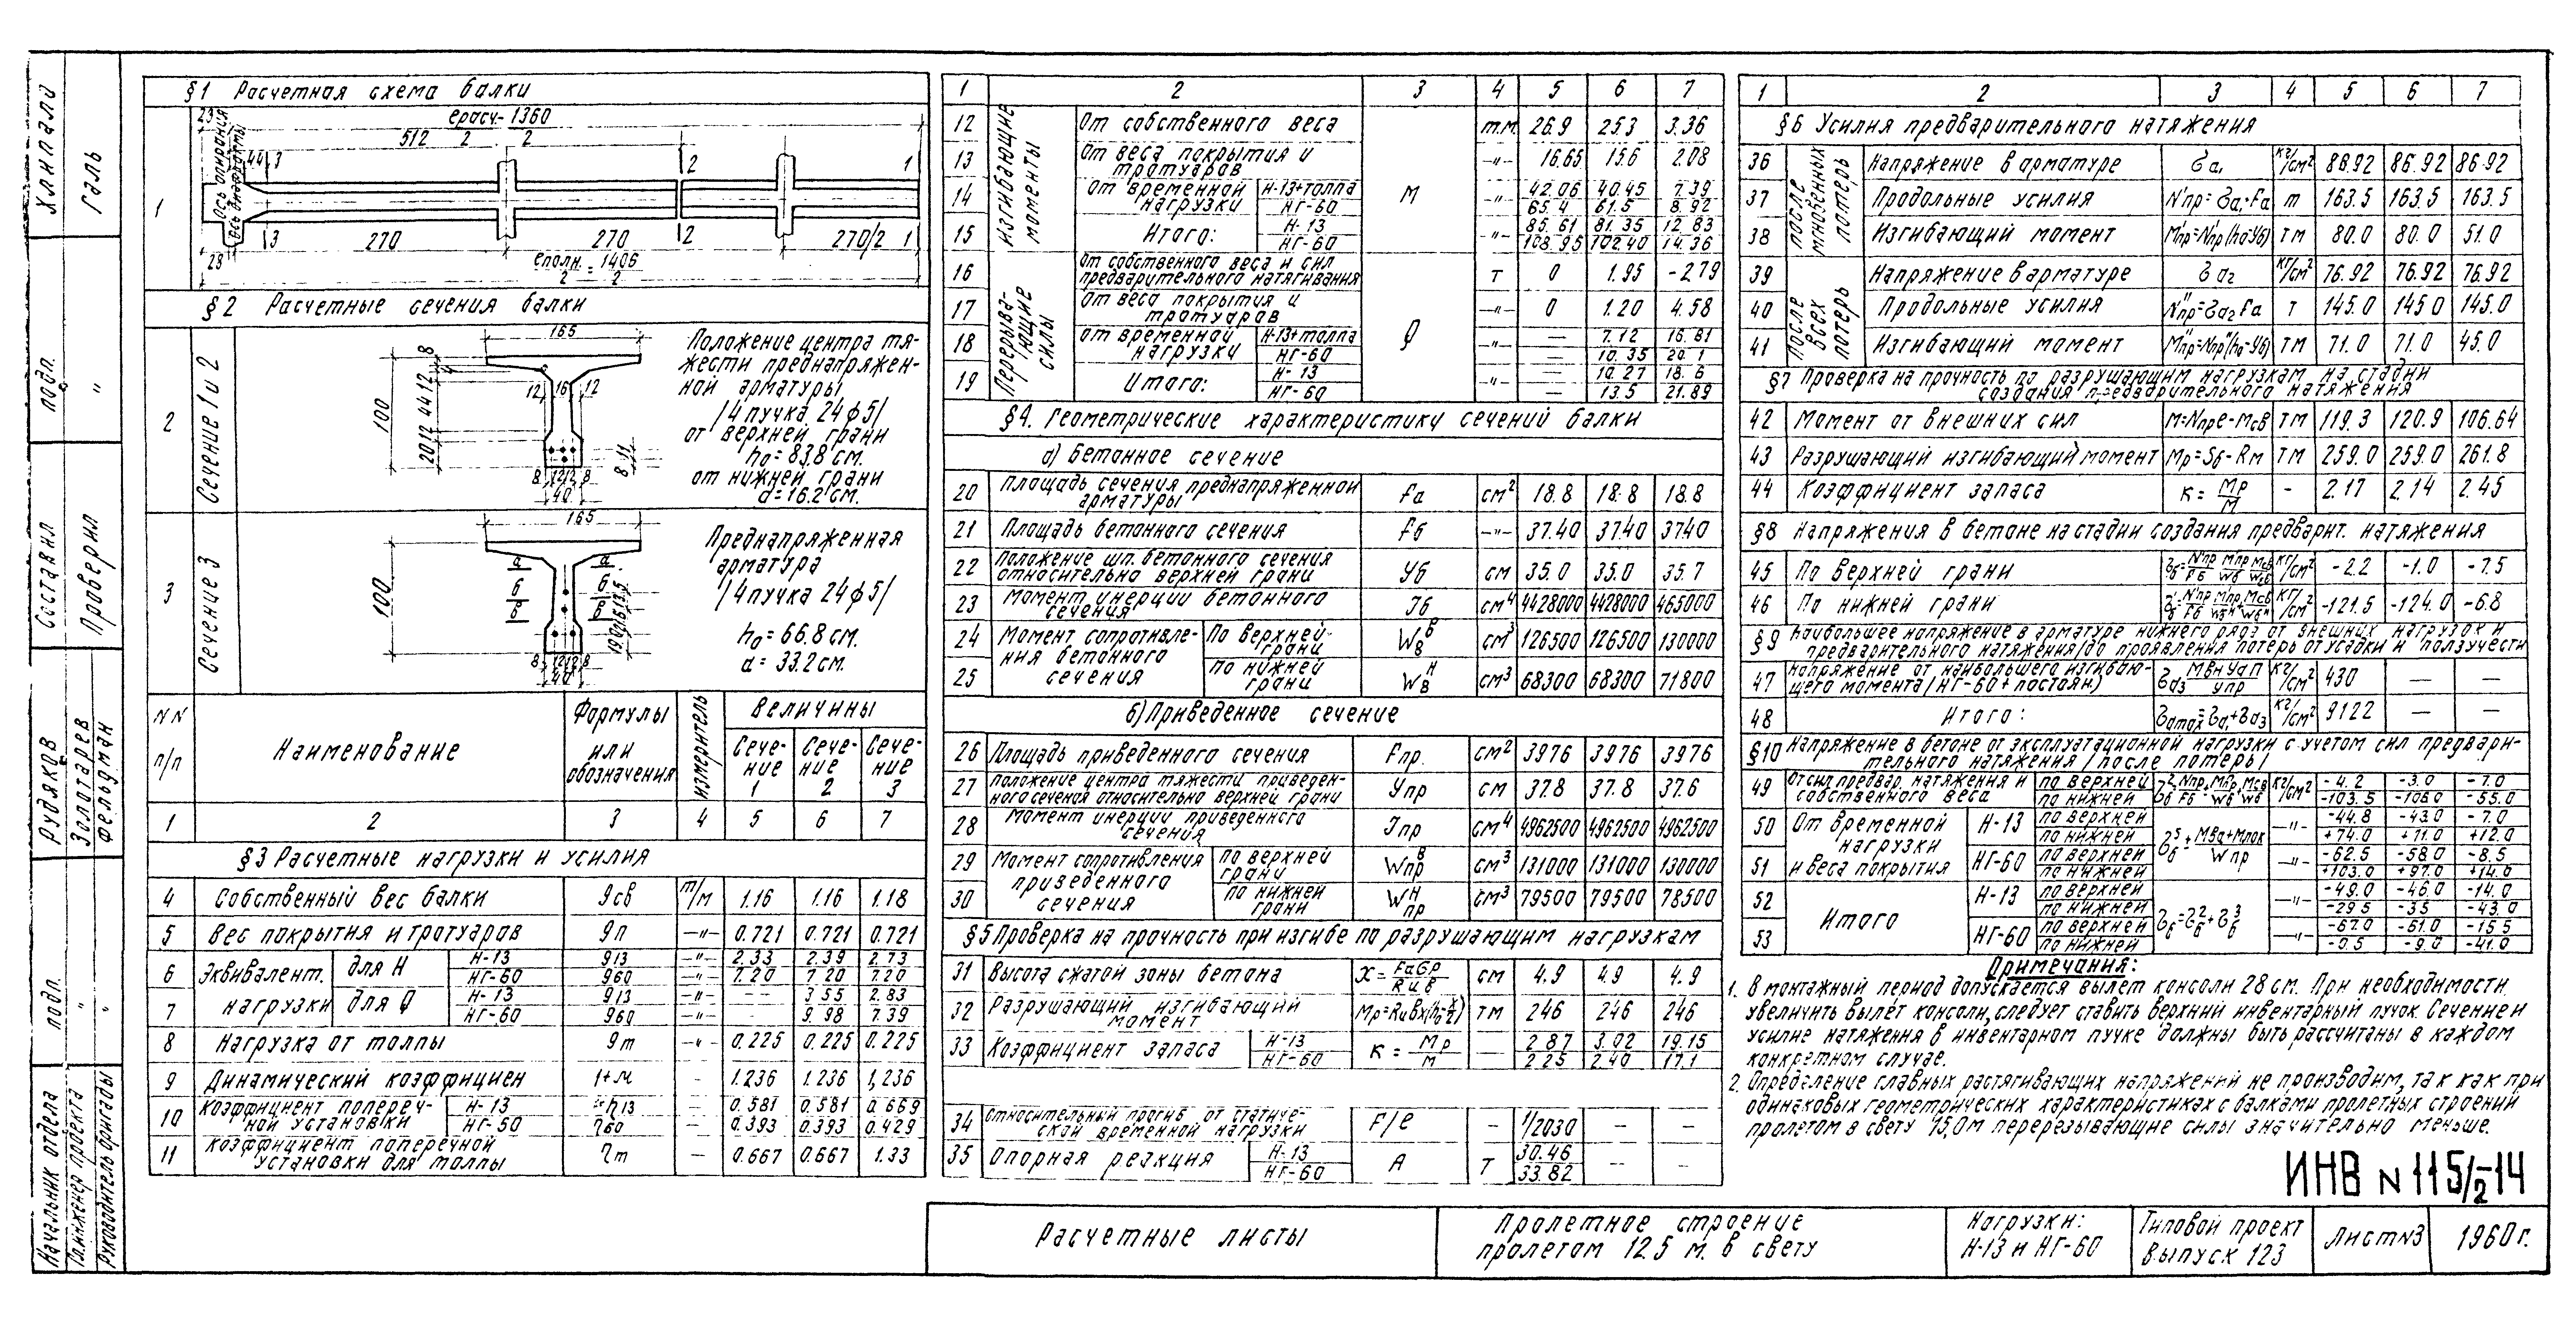 §1 Расчетная схема балки
1
23
ерасч-1360
512 2 2
Ось опирания
Ось диафрагмы
44 3 2 1
3 270 270 2 270/2 1
23
еполн. = 1406
2 2
§2 Расчетные сечения балки
2
Сечение 1 и 2
165
100
8
12 16 12
20 12 44 12
8 11
8 12 12 8
40
Положение центра тя-
жести преднапряжен-
ной арматуры
/4 пучка 24ф5/
от верхней грани
ho=83.8 см.
от нижней грани
d=16.2 см.
3
Сечение 3
165
100
а а
б б
в в
8 12 12 8
40
Преднапряженная
арматура
/4 пучка 24ф5/
ho=66.8 см.
d=33.2 см.
NN п/п
Наименование
Формулы или обозначения
Измеритель
Величины
Сече-ние 1
Сече-ние 2
Сече-ние 3
1 2 3 4 5 6 7
§3 Расчетные нагрузки и усилия
4 Собственный вес балки qсв т/м 1.16 1.16 1.18
5 Вес покрытия и тротуаров qп —"— 0.721 0.721 0.721
6 Эквивалент. для Н Н-13 q13 —"— 2.33 2.39 2.73
НГ-60 q60 —"— 7.20 7.20 7.20
7 нагрузки для Q Н-13 q13 —"— -- 3.55 2.83
НГ-60 q60 —"— - 9.98 7.39
8 Нагрузка от толпы qт —"— 0.225 0.225 0.225
9 Динамический коэффициен 1+м - 1.236 1.236 1,236
10 Коэффициент попереч-ной установки Н-13 h13 - 0.581 0.581 0.669
НГ-50 η60 0.393 0.393 0.429
11 Коэффициент поперечной установки для толпы ηт — 0.667 0.667 1.33
1 2 3 4 5 6 7
Изгибающие моменты
12 От собственного веса М т.м. 26.9 25.3 3.36
13 От веса покрытия и тротуаров —"— 16.65 15.6 2.08
14 от временной нагрузки Н-13+толпа —"— 42.06 40.45 7.39
НГ-60 65.4 61.5 8.92
15 Итого: Н-13 —"— 85.61 81.35 12.83
НГ-60 108.95 102.40 14.36
Перерыва-ющие силы
16 От собственного веса и сил предварительного натягивания Q т 0 1.95 -2.79
17 От веса покрытия и тротуаров —"— 0 1.20 4.58
18 от временной нагрузки Н-13+толпа —"— — 7.12 16.81
НГ-60 — 10.35 20.1
19 Итого: Н-13 —"— — 10.27 18.6
НГ-60 — 13.5 21.89
§4. Геометрические характеристику сечений балки
а) Бетонное сечение
20 Площадь сечения преднапряженной арматуры Fа см² 18.8 18.8 18.8
21 Площадь бетонного сечения Fб —"— 37.40 3740 3740
22 Положение шп. бетонного сечения относительно верхней грани Уб см 35.0 35.0 35.7
23 Момент инерции бетонного сечения Јб см⁴ 4428000 4428000 465000
24 Момент сопротивле-ния бетонного сечения По верхней грани Wв В см³ 126500 126500 130000
25 по нижней грани Wв Н см³ 68300 68300 71800
б) Приведенное сечение
26 Площадь приведенного сечения Fпр. см² 3976 3976 3976
27 Положение центра тяжести приведен-ного сечения относительно верхней грани Упр см 37.8 37.8 37.6
28 Момент инерции приведенного сечения Јпр см⁴ 4962500 4962500 4962500
29 Момент сопротивления приведенного сечения по верхней грани Wпр В см³ 131000 131000 130000
30 по нижней грани Wпр Н см³ 79500 79500 78500
§5 Проверка на прочность при изгибе по разрушающим нагрузкам
31 Высота сжатой зоны бетона х=Fабр/Rив см 4.9 4.9 4.9
32 Разрушающий изгибающий момент Мр=Rивх(ho-х/2) тм 246 246 246
33 Коэффициент запаса Н-13 к=Мр/М — 2.87 3.02 19.15
НГ-60 2.25 2.40 17.1
34 Относительный прогиб от статиче-ской временной нагрузки F/е - 1/2030 - -
35 Опорная реакция Н-13 А т 30.46 -- -
НГ-60 33.82
1 2 3 4 5 6 7
§6 Усилия предварительного натяжения
после мновенных потерь
36 Напряжение в арматуре ба₁ кг/см² 86.92 86.92 86.92
37 Продольные усилия N'пр=ба₁·Fа т 163.5 163.5 163.5
38 Изгибающий момент М'пр=N'пр(ho-Уб) тм 80.0 80.0 51.0
После всех потерь
39 Напряжение в арматуре ба₂ кг/см² 76.92 76.92 76.92
40 Продольные усилия N"пр=ба₂Fа т 145.0 145.0 145.0
41 Изгибающий момент М"пр=N"пр(ho-Уб) тм 71.0 71.0 45.0
§7 Проверка на прочность по разрушающим нагрузкам на стадии
создания предварительного натяжения
42 Момент от внешних сил М=Nпре-Мсв тм 119.3 120.9 106.64
43 Разрушающий изгибающий момент Мр=Sб-Rм тм 259.0 259.0 261.8
44 Коэффициент запаса к=Мр/М - 2.17 2.14 2.45
§8 Напряжения в бетоне на стадии создания предварит. натяжения
45 По верхней грани кг/см² -2.2 -1.0 -7.5
46 По нижней грани кг/см² -121.5 -124.0 -6.8
§9 Наибольшее напряжение в арматуре нижнего ряда от внешних нагрузок и
предварительного натяжения/до проявления потерь от усадки и ползучести
47 Напряжение от наибольшего изгибаю-щего момента/НГ-60+постоян) кг/см² 430 — —
48 Итого: баmax=ба₁+ба₃ кг/см² 9122 — —
§10 Напряжение в бетоне от эксплуатационной нагрузки с учетом сил предвари-
тельного натяжения/после потеры/
49 От сил предвар. натяжения и собственного веса по верхней кг/см² -4.2 -3.0 -7.0
по нижней -103.5 -106.0 -55.0
50 От временной нагрузки и веса покрытия Н-13 по верхней —"— -44.8 -43.0 -7.0
по нижней +74.0 +71.0 +12.0
51 НГ-60 по верхней —"— -62.5 -58.0 -8.5
по нижней +103.0 +97.0 +14.0
52 Итого Н-13 по верхней —"— -49.0 -46.0 -14.0
по нижней -29.5 -35 -43.0
53 НГ-60 по верхней —"— -67.0 -61.0 -15.5
по нижней -0.5 -9.0 -41.0
Примечания:
1. В монтажный период допускается вылет консоли 28 см. При необходимости
увеличить вылет консоли, следует ставить верхний инвентарный пучок. Сечение и
усилие натяжения в инвентарном пучке должны быть рассчитаны в каждом
конкретном случае.
2. Определение главных растягивающих напряжений не производим, так как при
одинаковых геометрических характеристиках с балками пролетных строений
пролетом в свету 15,0м перерезывающие силы значительно меньше.
ИНВ N 115/2-14
Расчетные листы
Пролетное строение
пролетом 12.5 м. в свету
Нагрузки:
Н-13 и НГ-60
Типовой проект
Выпуск 123
Лист N3
1960г.
Хлипали Галь
подп. "
Составил Проверил
Рудяков Золотарев Фельдман
подп. " "
Начальник отдела
Гл. инженер проекта
Руководитель бригады